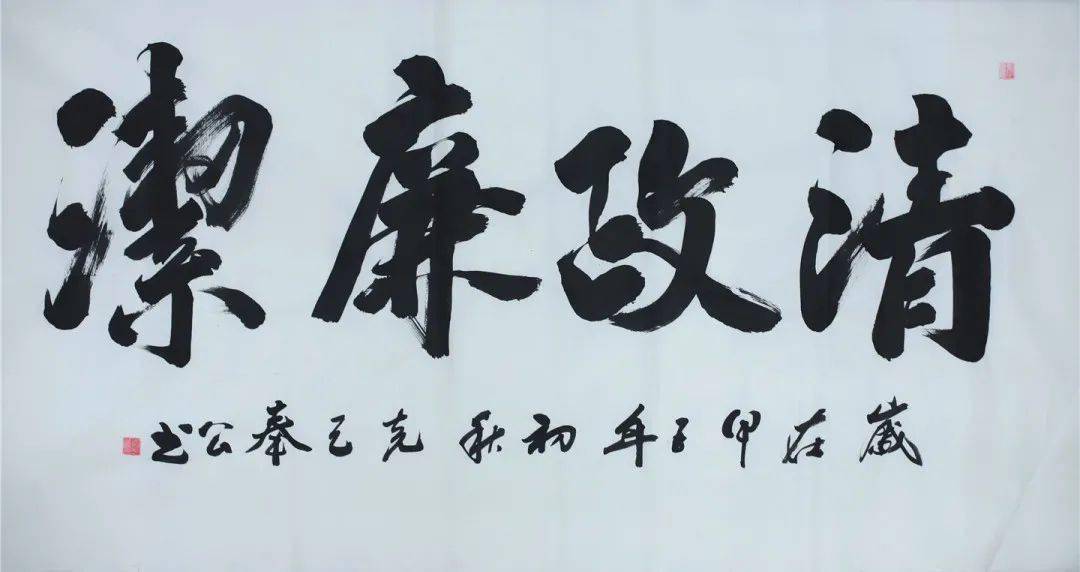 清政廉潔
歲在甲子年初秋克己奉公书